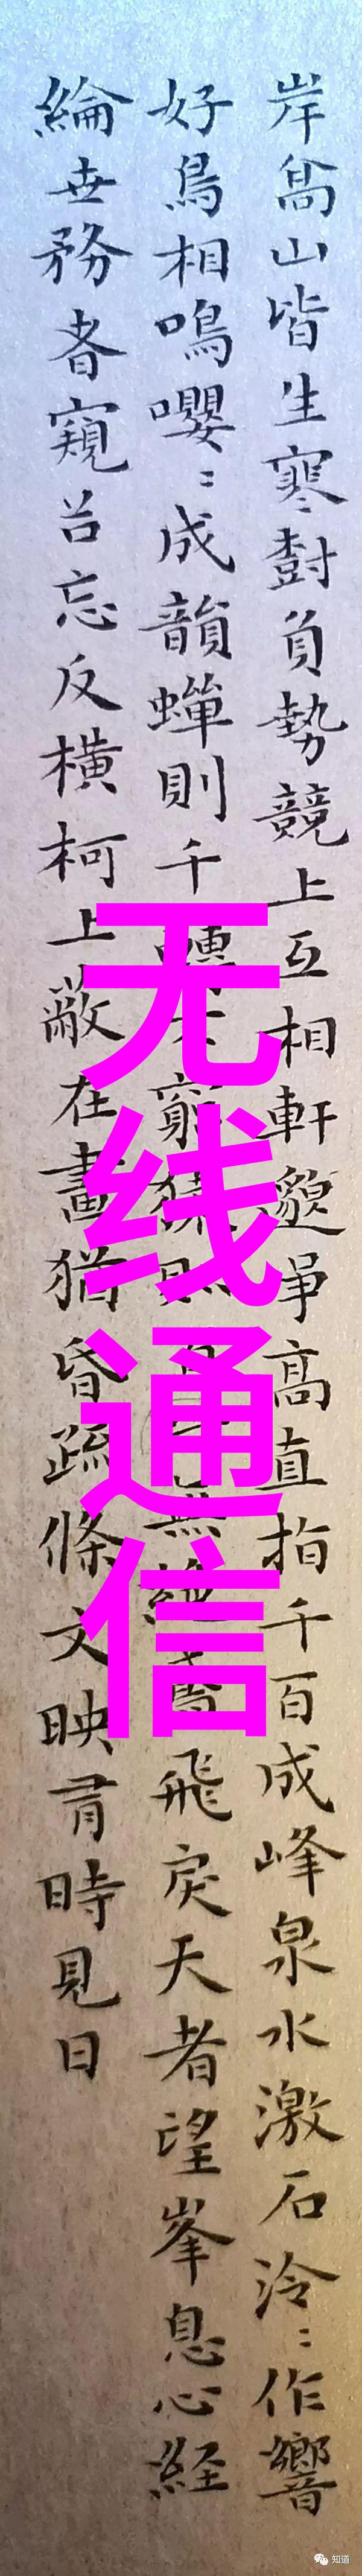 岸髙山皆生寒樹負勢競上互相軒邈爭高直指千百成峰泉水激石泠〻作響
好鳥相鳴嚶〻成韻蟬則千不窮猿則無絕鳶飛戾天者望峯息心経
綸世務者窺谷忘反橫柯上蔽在晝猶昏疏條交映有時見日
无线通信
知道